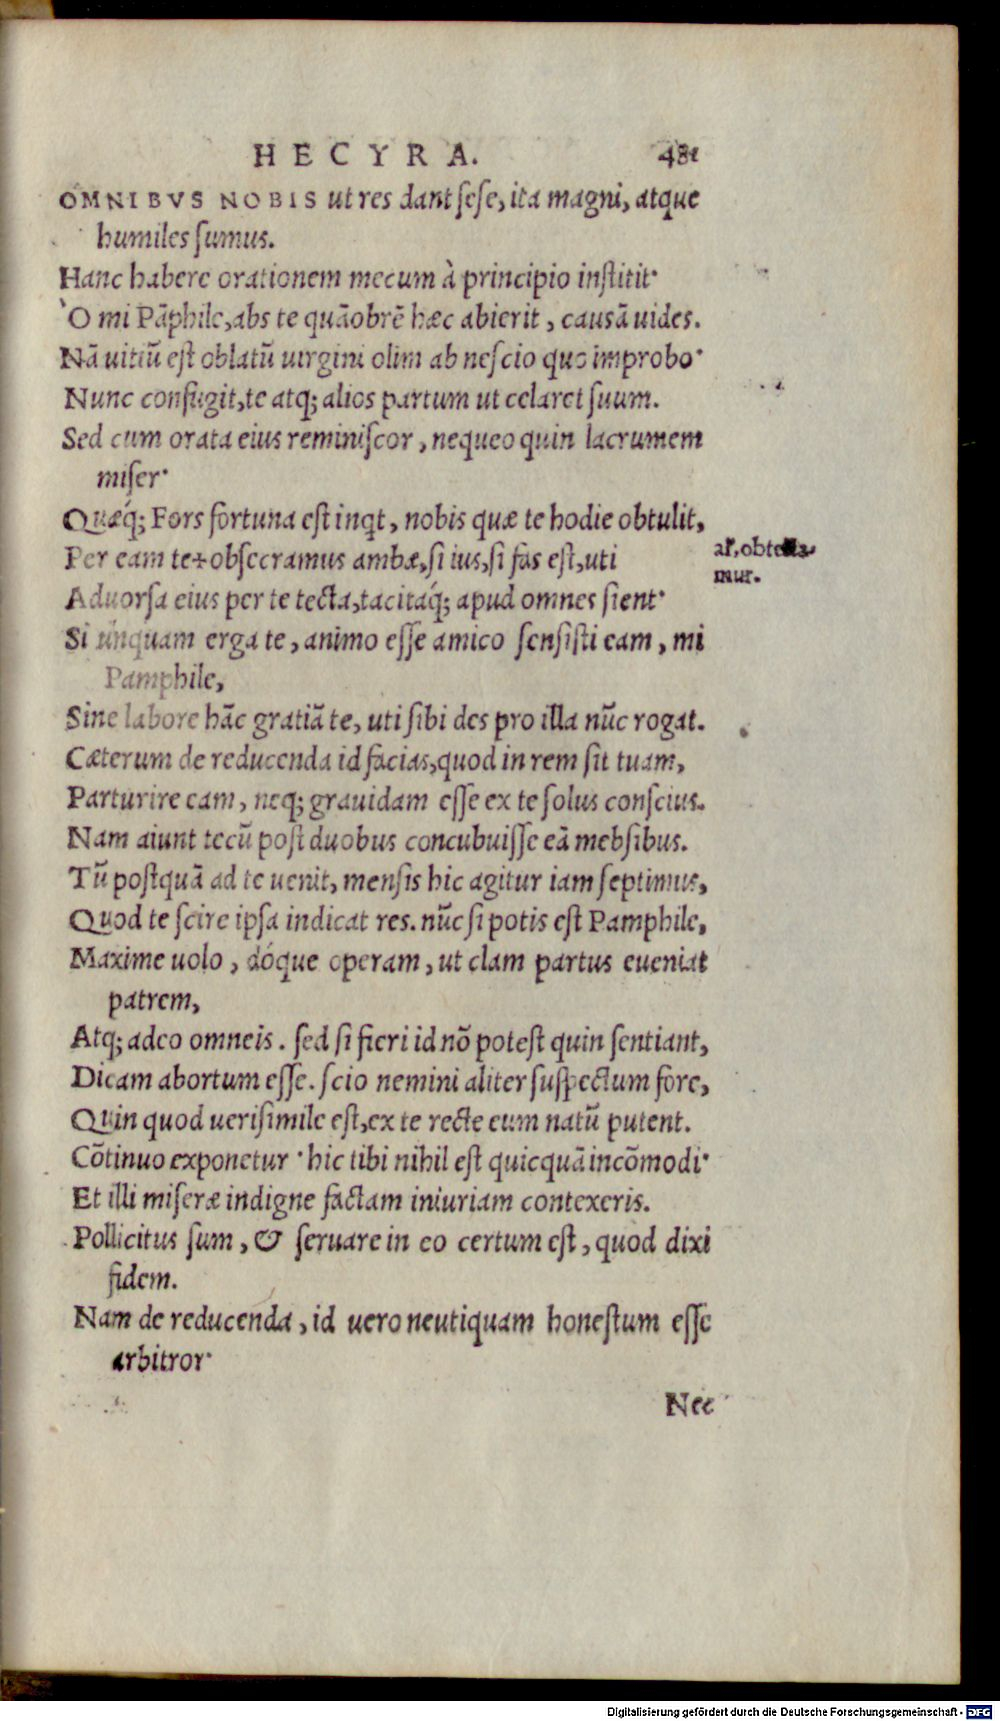 HECYRA. 481
OMNIBVS NOBIS ut res dant sese, ita magni, atque
humiles sumus.
Hanc habere orationem mecum à principio institit·
Ò mi Pāphile, abs te quāobrē hæc abierit, causā uides.
Nā uitiū est oblatū uirgini olim ab nescio quo improbo·
Nunc confugit, te atq; alios partum ut celaret suum.
Sed cum orata eius reminiscor, nequeo quin lacrumem
miser·
Quæq́; Fors fortuna est inqt, nobis quæ te hodie obtulit,
Per eam te+obsecramus ambæ, si ius, si fas est, uti
al. obtesta-
mur.
Aduorsa eius per te tecta, tacitaq́; apud omnes sient·
Si unquam erga te, animo esse amico sensisti eam, mi
Pamphile,
Sine labore hāc gratiā te, uti sibi des pro illa nūc rogat.
Cæterum de reducenda id facias, quod in rem sit tuam,
Parturire eam, neq; grauidam esse ex te solus conscius.
Nam aiunt tecū post duobus concubuisse eā mebsibus.
Tū postquā ad te uenit, mensis hic agitur iam septimus,
Quod te scire ipsa indicat res. nūc si potis est Pamphile,
Maxime uolo, dóque operam, ut clam partus eueniat
patrem,
Atq; adeo omneis. sed si fieri id nō potest quin sentiant,
Dicam abortum esse. scio nemini aliter suspectum fore,
Quin quod uerisimile est, ex te recte eum natū putent.
Cōtinuo exponetur· hic tibi nihil est quicquā incōmodi·
Et illi miseræ indigne factam iniuriam contexeris.
Pollicitus sum, & seruare in eo certum est, quod dixi
fidem.
Nam de reducenda, id uero neutiquam honestum esse
arbitror·
Nec
Digitalisierung gefördert durch die Deutsche Forschungsgemeinschaft - DFG